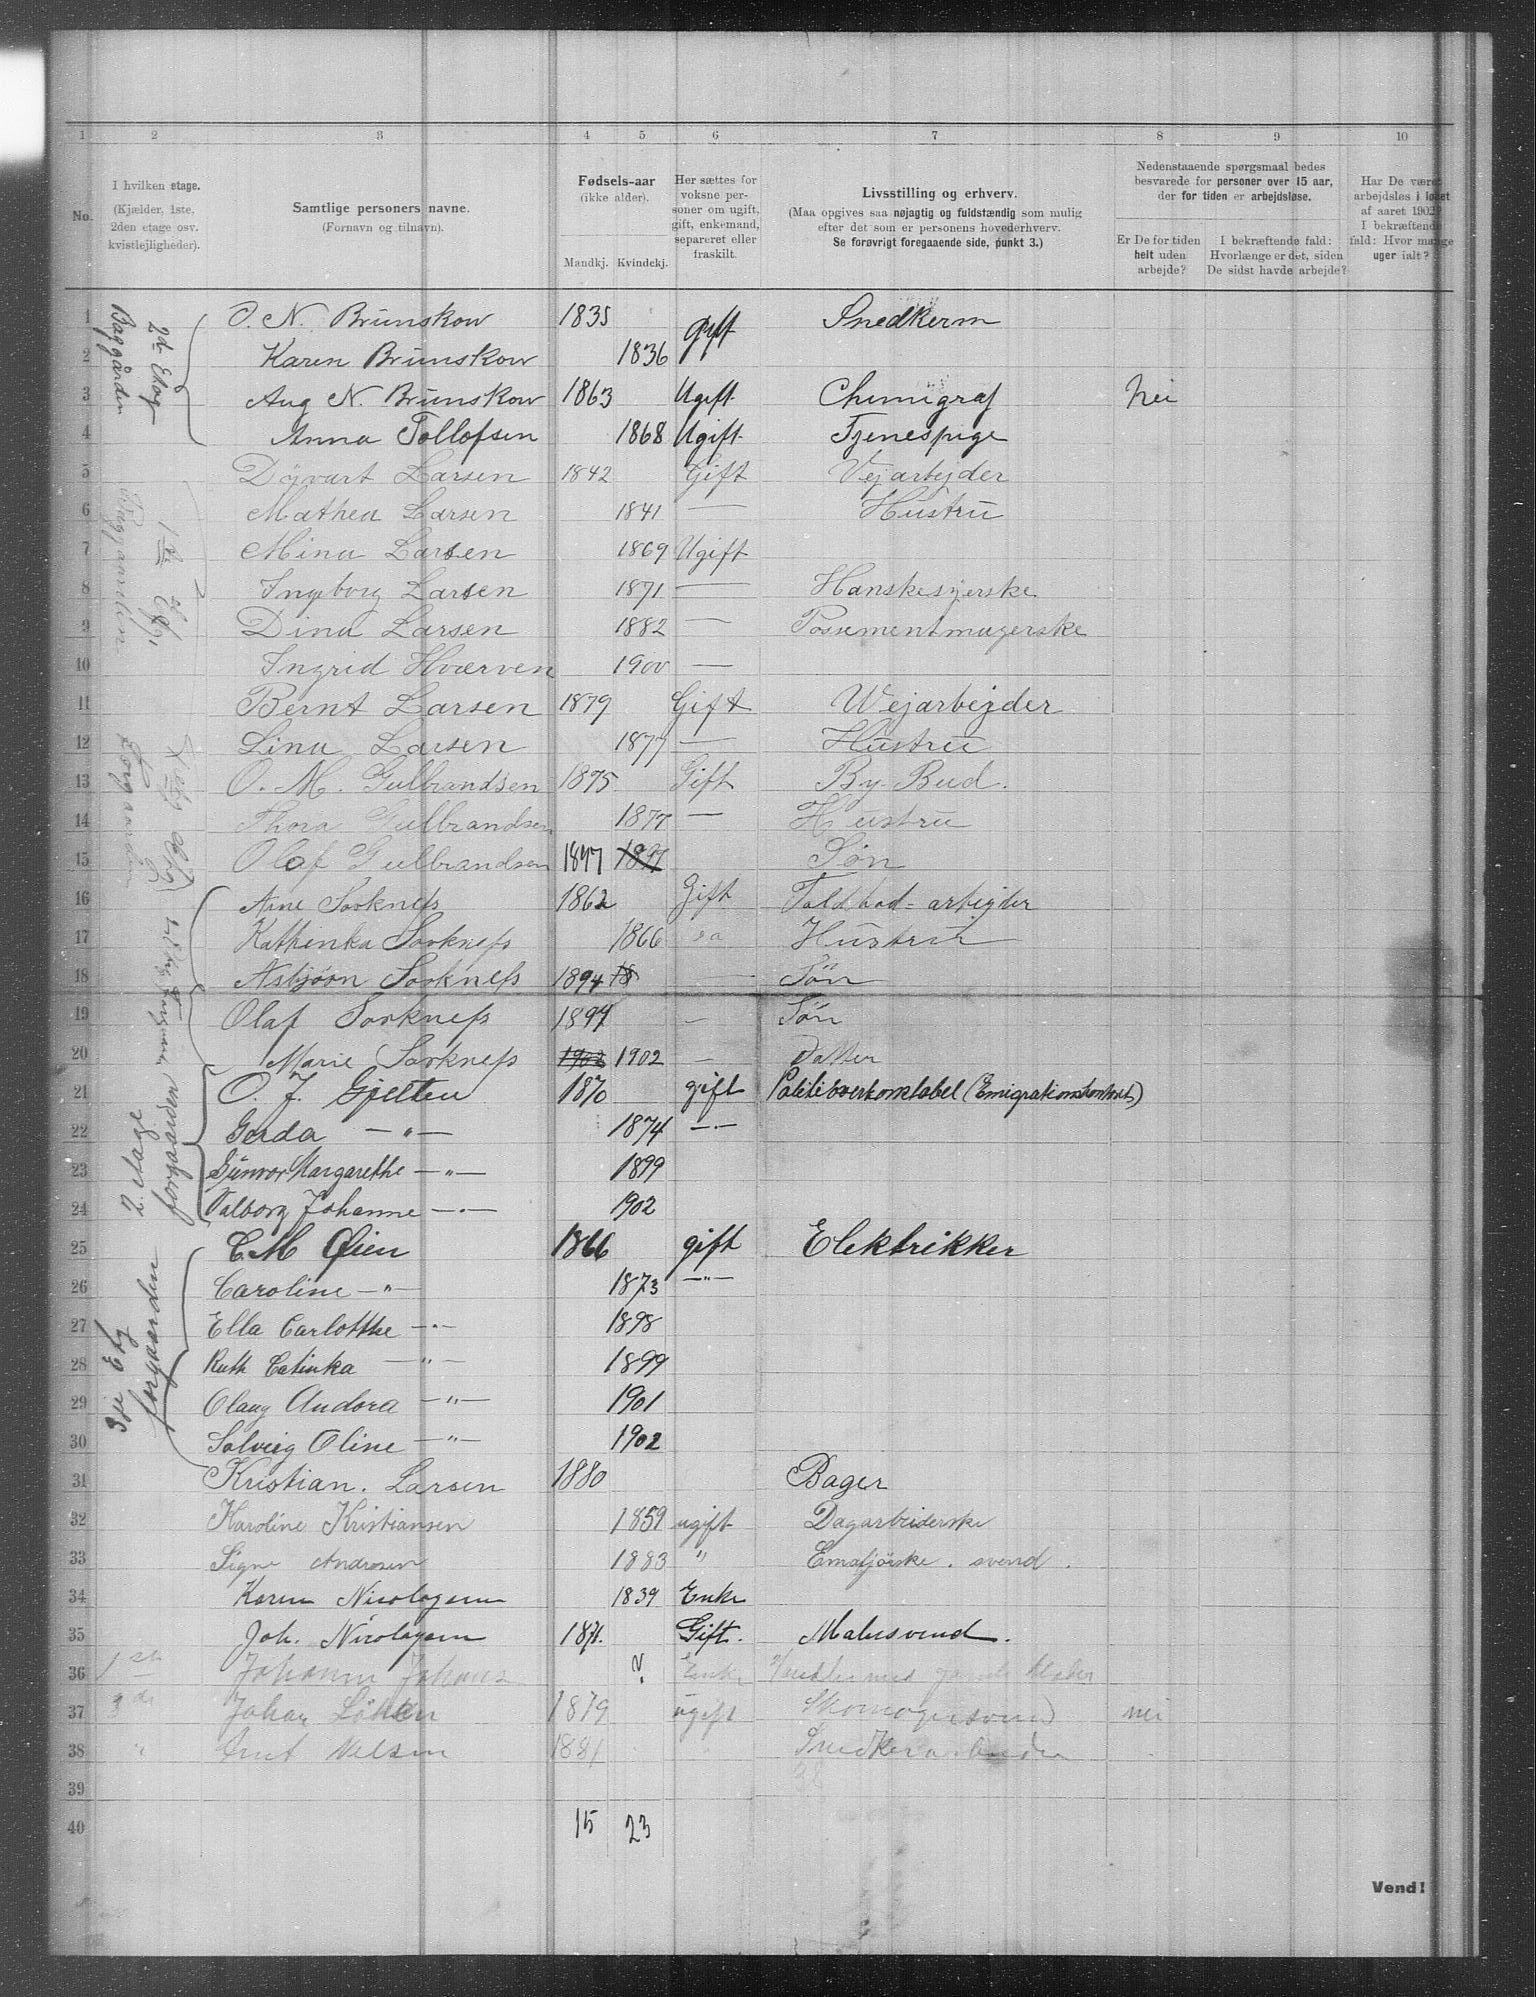 1 2 3 4 5 6 7 8 9 10
No.
I hvilken etage.
(Kjælder, 1ste,
2den etage osv.
kvistlejligheder).
Samtlige personers navne.
(Fornavn og tilnavn).
Fødsels-aar
(ikke alder).
Mandkj. Kvindekj.
Her sættes for
voksne per-
soner om ugift,
gift, enkemand,
separeret eller
fraskilt.
Livsstilling og erhverv.
(Maa opgives saa nøjagtig og fuldstændig som mulig
efter det som er personens hovederhverv.
Se forøvrigt foregaaende side, punkt 3.)
Nedenstaaende spørgsmaal bedes
besvarede for personer over 15 aar,
der for tiden er arbejdsløse.
Er De for tiden
helt uden
arbejde?
I bekræftende fald:
Hvorlænge er det, siden
De sidst havde arbejde?
Har De været
arbejdsløs i løbet
af aaret 1902?
I bekræftende
fald: Hvor mange
uger ialt?
2de Etag
Baggården
1 O. N. Brunskow 1835 gift Snedkerm
2 Karen Brunskow 1836
3 Aug N. Brunskow 1863 Ugift Chemigraf Nei
4 Anna Tollofsen 1868 Ugift Tjenespige
5 Dÿvart Larsen 1842 Gift Vejarbejder
6 Mathea Larsen 1841 — Hustru
7 Mina Larsen 1869 Ugift
8 Ingborg Larsen 1871 — Hanskesyerske
9 Dina Larsen 1882 — Possementmagerske
10 Ingrid Hværven 1900 —
11 Bernt Larsen 1879 Gift Wejarbejder
12 Lina Larsen 1877 — Hustru
13 O. M. Gulbrandsen 1875 Gift By. Bud.
14 Thora Gulbrandsen 1877 — Hustru
15 Olaf Gulbrandsen 1897 1897 Søn
16 Arne Sorkness 1862 Gift
17 Kathinka Sorkness 1866 Hustru
18 Asbjørn Sorkness 1894 18 — Søn
19 Olaf Sorkness 1897 — Søn
20 Marie Sorkness 1902 1902 — Datter
2. etage
forgaarden
21 O. J. Gjelten 1870 gift Politioverkonstabel (Emigrationskontoret)
22 Gerda —"— 1874 —"—
23 Gunvor Margarethe —"— 1899
24 Valborg Johanne —"— 1902
3die Etg
forgaarden
25 C. M Øien 1866 gift Elektrikker
26 Caroline —"— 1873 —"—
27 Ella Carlotthe —"— 1898
28 Ruth Catinka —"— 1899
29 Olaug Andora —"— 1901
30 Solveig Oline —"— 1902
31 Kristian. Larsen 1880 Bager
32 Karoline Kristiansen 1859 ugift Dagarbeiderske
33 Signe Andresen 1883 " svend.
34 Karen Nicolaysen 1839 Enke
35 Joh. Nicolaysen 1871. Gift. Malersvend.
36 1st ? Enke
37 Johan 1879 ugift Skomagersvend nei
38 " Nelsen 1881 Snedkerarbeider
39 38
40 15 23
Vend!